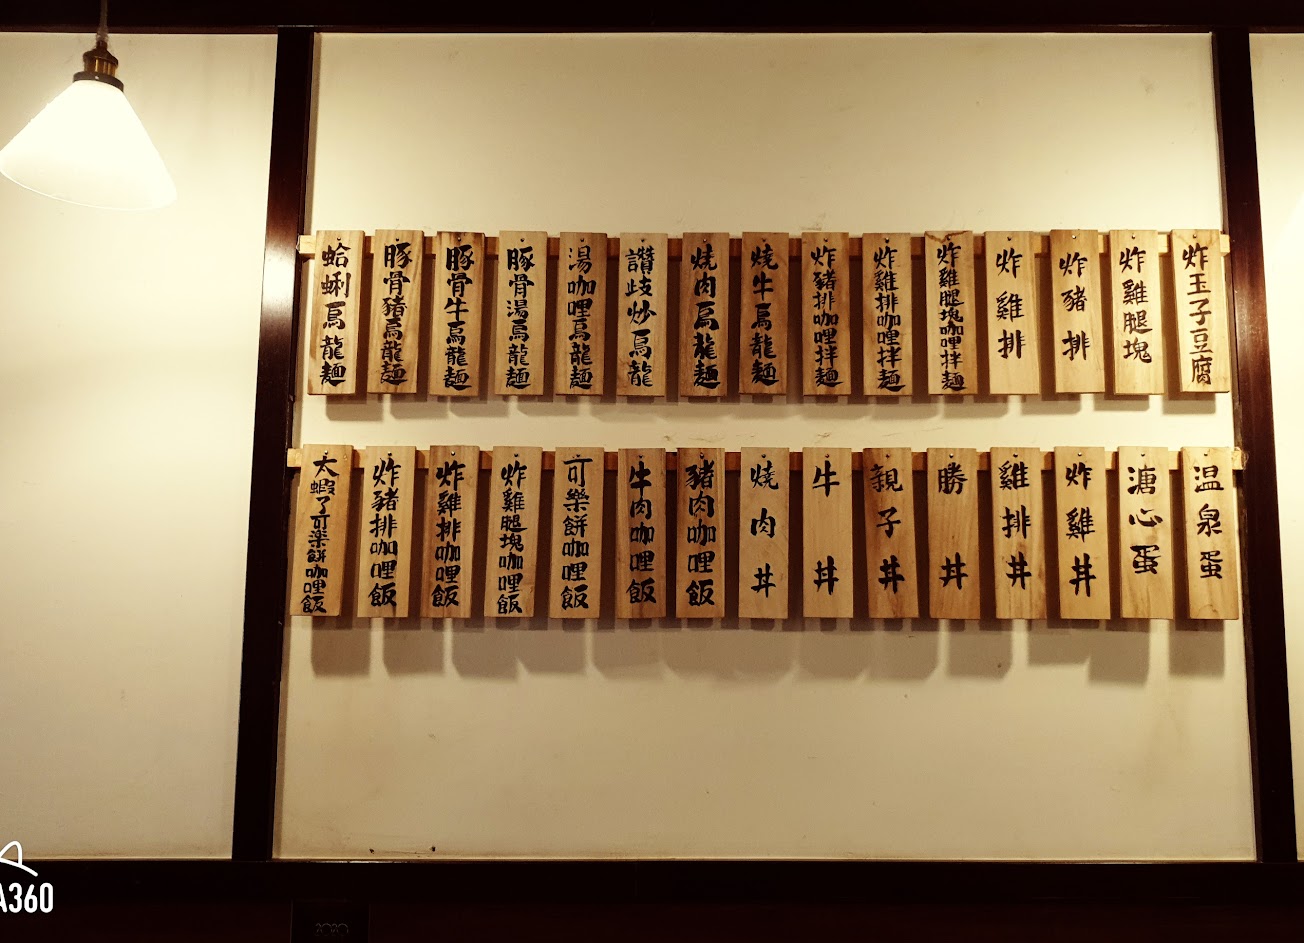 炸玉子豆腐
炸雞腿塊
炸豬排
炸雞排
炸雞腿塊咖哩拌麵
炸雞排咖哩拌麵
炸豬排咖哩拌麵
燒牛烏龍麵
燒肉烏龍麵
讚歧炒烏龍
湯咖哩烏龍麵
豚骨湯烏龍麵
豚骨牛烏龍麵
豚骨豬烏龍麵
蛤蜊烏龍麵
温泉蛋
溏心蛋
炸雞丼
雞排丼
勝丼
親子丼
牛丼
燒肉丼
豬肉咖哩飯
牛肉咖哩飯
可樂餅咖哩飯
炸雞腿塊咖哩飯
炸雞排咖哩飯
炸豬排咖哩飯
太蝦了可樂餅咖哩飯
A360